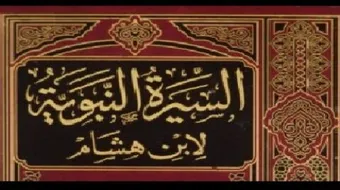 السِّيرَةُ النَّبَوِيَّةُ
لِابْنِ هِشَام